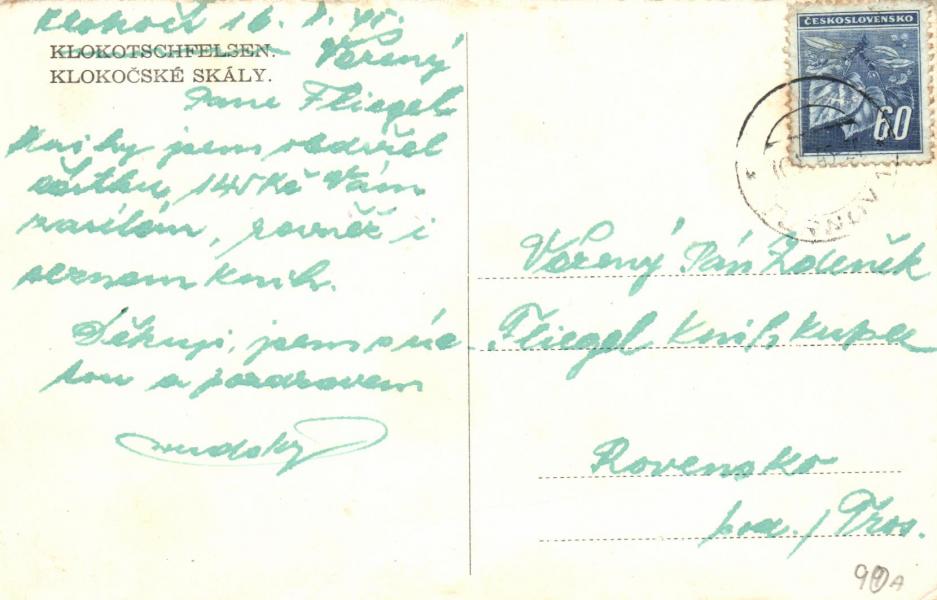 Klokočí 16. 8. 45.
KLOKOTSCHFELSEN.
KLOKOČSKÉ SKÁLY.
Vážený
Pane Fliegel
Knihy jsem obdržel
částku 145 Kč Vám
zasílám, rovněž i
seznam knih.
Děkuji, jsem s úc-
tou a pozdravem
ČESKOSLOVENSKO
60
Vážený Pán Zdeněk
Fliegel Knihkupec
Rovensko
pod./Tros.